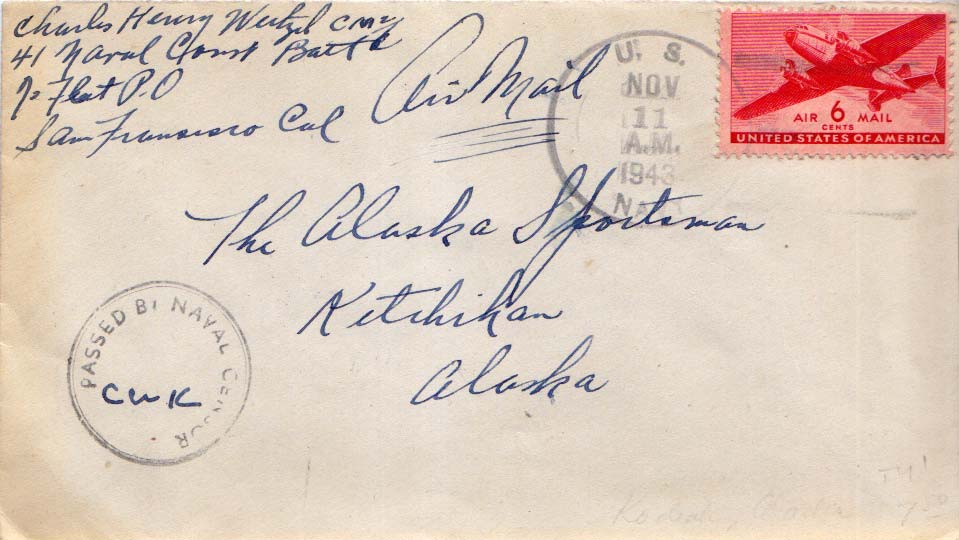 Charles Henry Wentzel CM2c
41 Naval Const Batt
℅ Fleet P.O
San Francisco Cal
Air Mail
U. S.
NOV
11
A.M.
1943
NAVY
AIR 6 MAIL
CENTS
UNITED STATES OF AMERICA
The Alaska Sportsman
Ketchikan
Alaska
PASSED BY NAVAL CENSOR
CWK
Kodiak, Alaska